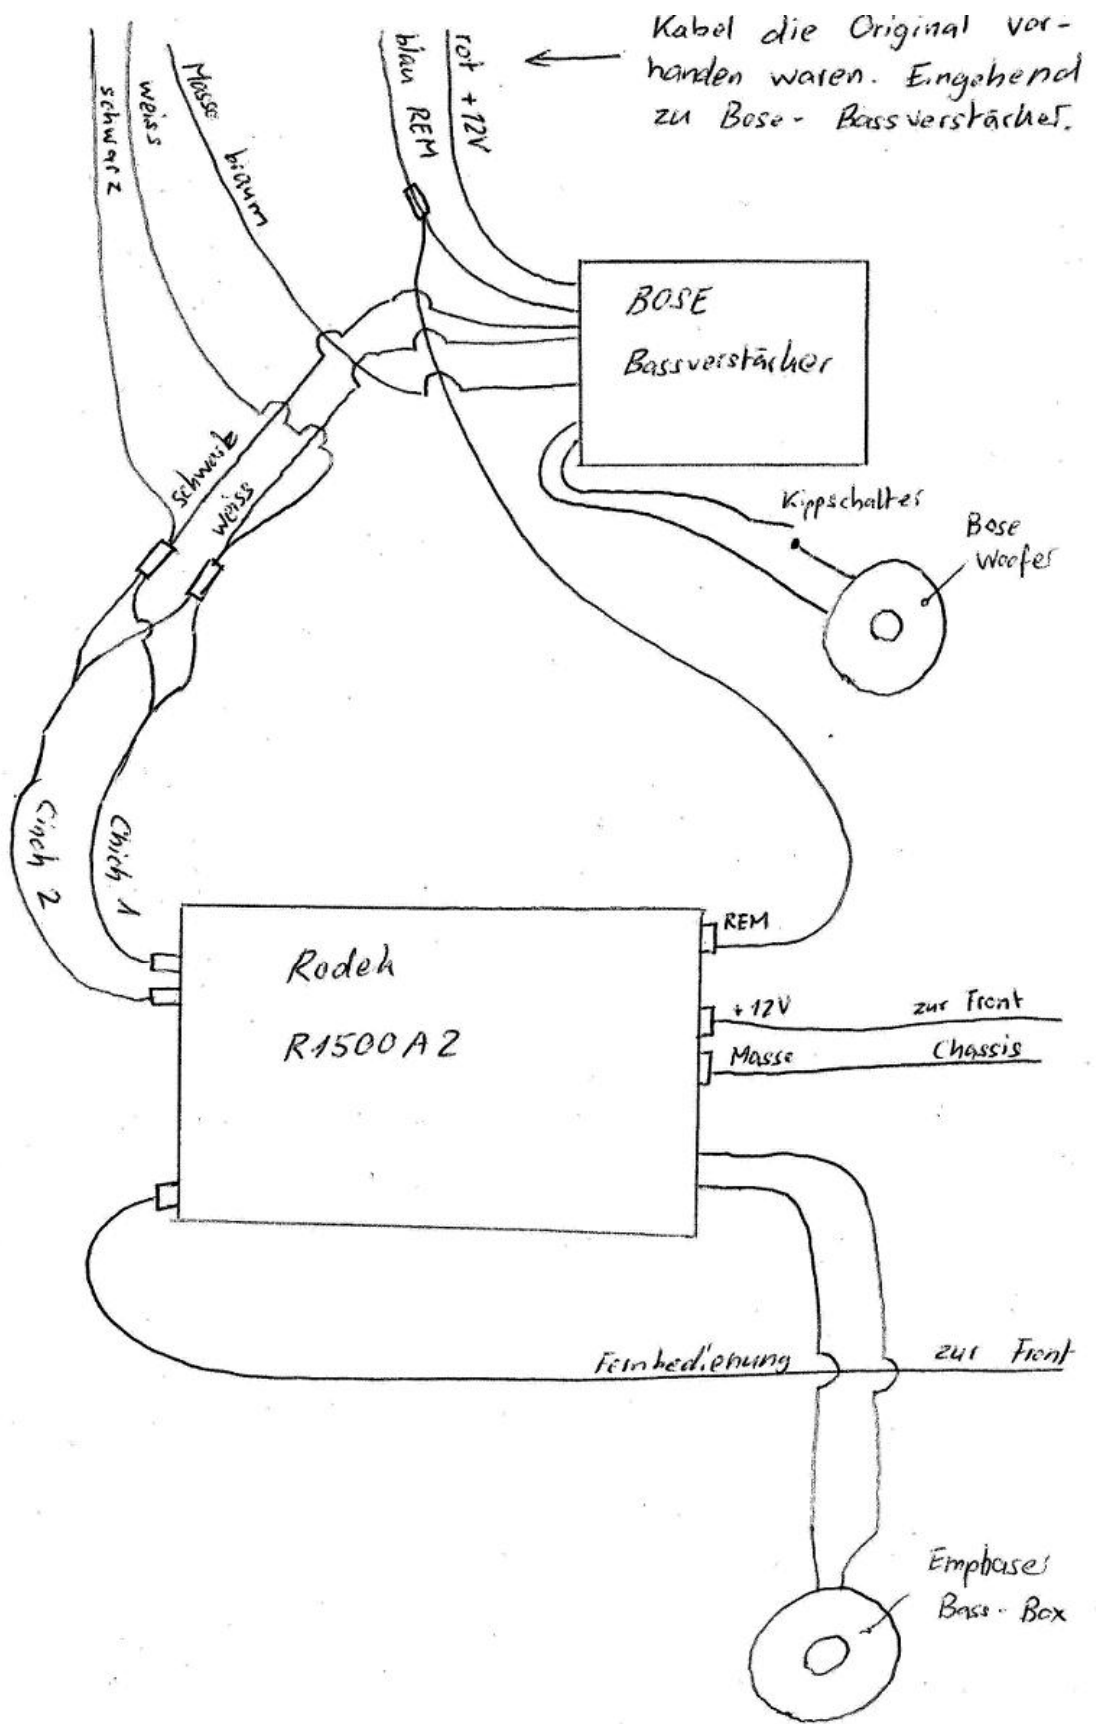 Kabel die Original vor-
handen waren. Eingehend
zu Bose- Bassverstärker.
schwarz
weiss
Masse braun
blau REM
rot +12V
BOSE
Bassverstärker
schwarz
weiss
Kippschalter
Bose
Woofer
Cinch 2
Chich 1
Rodek
R1500A2
REM
+12V zur Front
Masse Chassis
Fernbedienung zur Front
Emphaser
Bass-Box